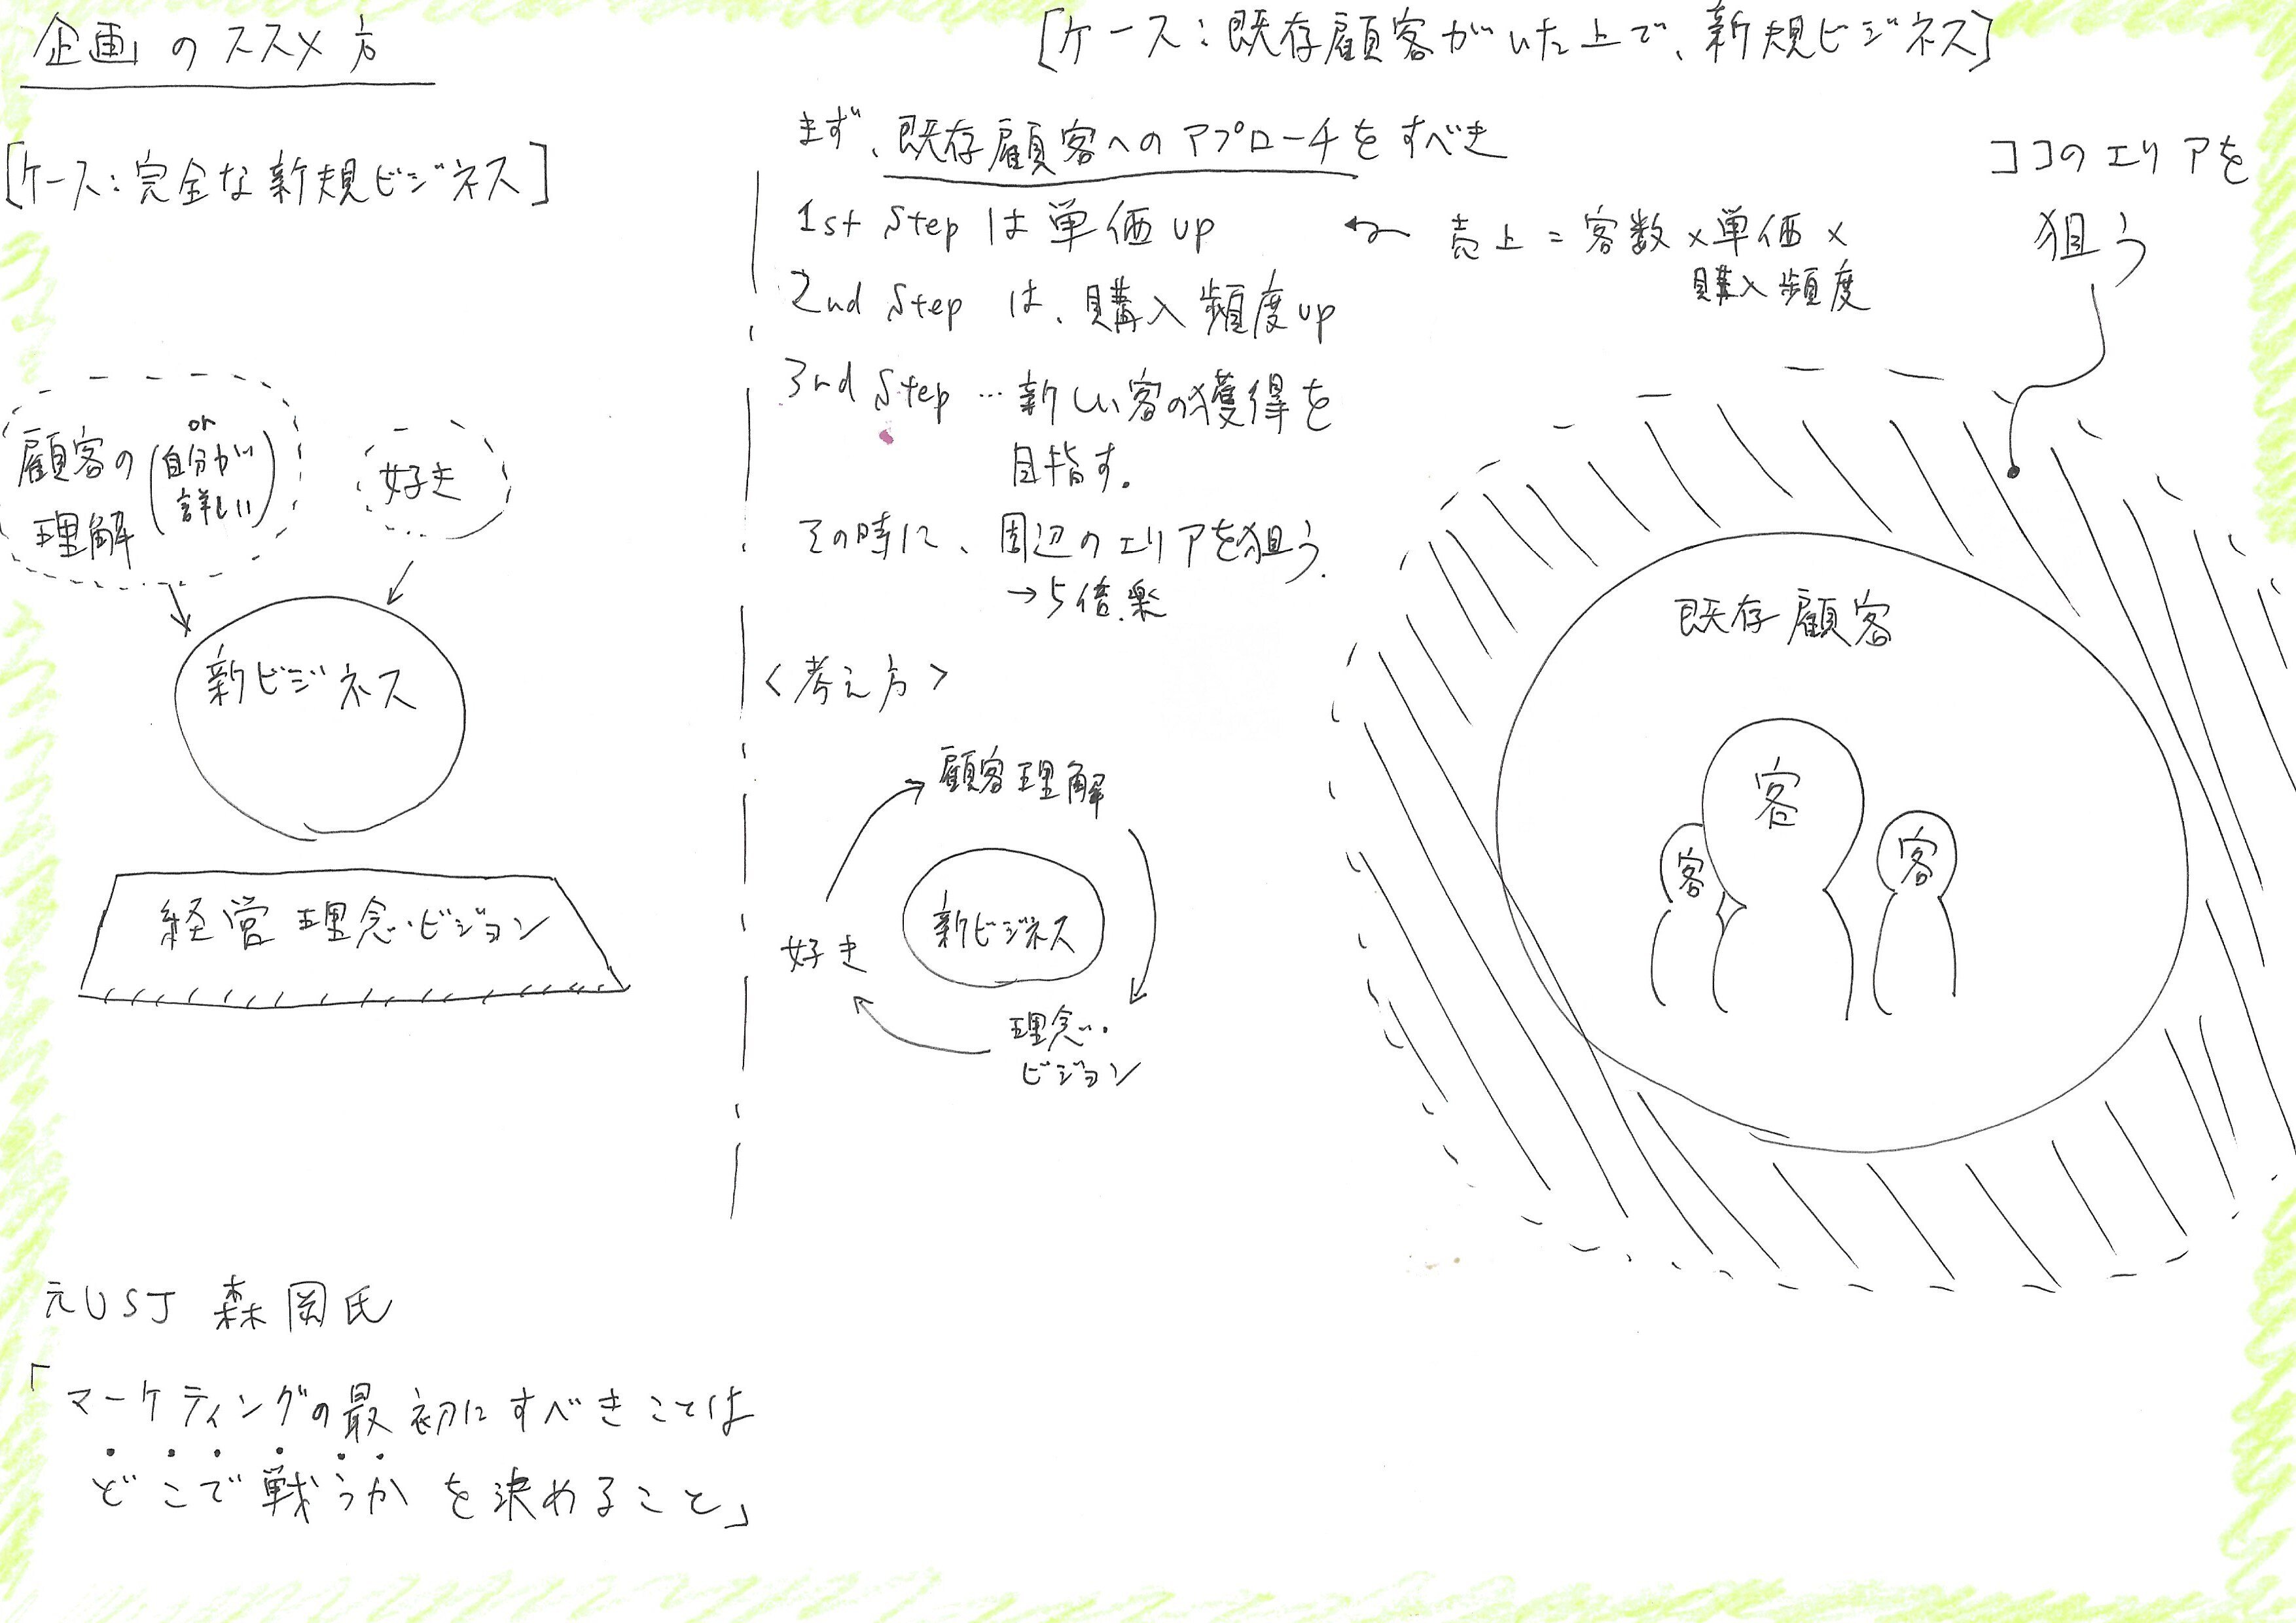 企画のススメ方
[ケース:完全な新規ビジネス]
顧客の
理解
(or
自分が
詳しい)
好き
新ビジネス
経営理念・ビジョン
元USJ 森岡氏
「マーケティングの最初にすべきことは
どこで戦うかを決めること」
[ケース:既存顧客がいた上で、新規ビジネス]
まず、既存顧客へのアプローチをすべき
1st Stepは単価up
← 売上=客数×単価×
購入頻度
2nd Stepは、購入頻度up
3rd Step…新しい客の獲得を
目指す。
その時に、周辺のエリアを狙う.
→5倍楽
<考え方>
顧客理解
新ビジネス
好き
理念・
ビジョン
ココのエリアを
狙う
既存顧客
客
客
客